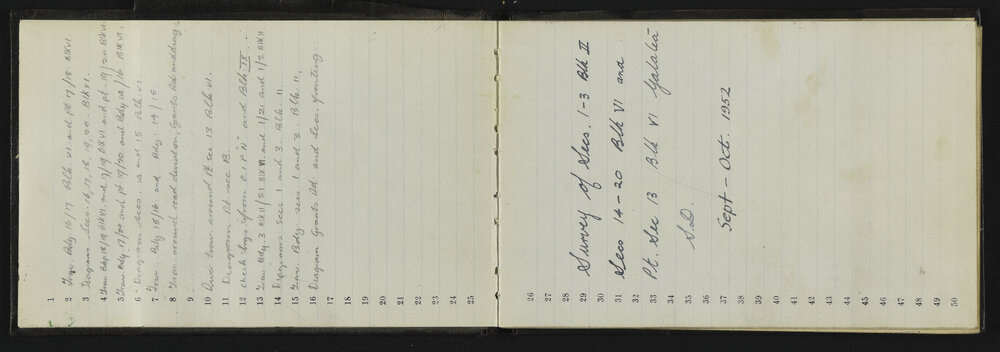 1
2 Trav. Bdy 16/17 Blk. VI and pt 17/18 BlkVI
3 Diagram Secs. 16, 17, 18, 19, 20. Blk VI.
4 Trav Bdy 18/19 BlkVI and 17/19 BlkVI and pt. 19/20 BlkVI.
5 Trav Bdy. 17/20 and pt 19/20 and Bdy 14/16 Blk VI
6 Diagram Secs. 14 and 15 Blk VI
7 Trav. Bdy 15/16 and Bdy. 14/15.
8 Trav. around road deviation, Grants Rd
9
10 trav around Pt sec 13 Blk VI.
11 Diagram Pt sec 13.
12 Check brgs from O.I.P. "N" and Blk III
13 Trav Bdy 3 Blk II/21 Blk VI and 1/21 and 1/2 Blk II
14 Diagrams secs 1 and 3 Blk. 11.
15 Trav Bdy secs 1 and 3 Blk. 11.
16 Diagram Grants Rd and Secs fronting.
17
18
19
20
21
22
23
24
25
26
27
28
29 Survey of Secs. 1-3 Blk II
30
31 Secs 14-20 Blk VI and
32
33 Pt. Sec 13 Blk VI Galatea
34
35 S.D.
36
37 Sept - Oct. 1952
38
39
40
41
42
43
44
45
46
47
48
49
50